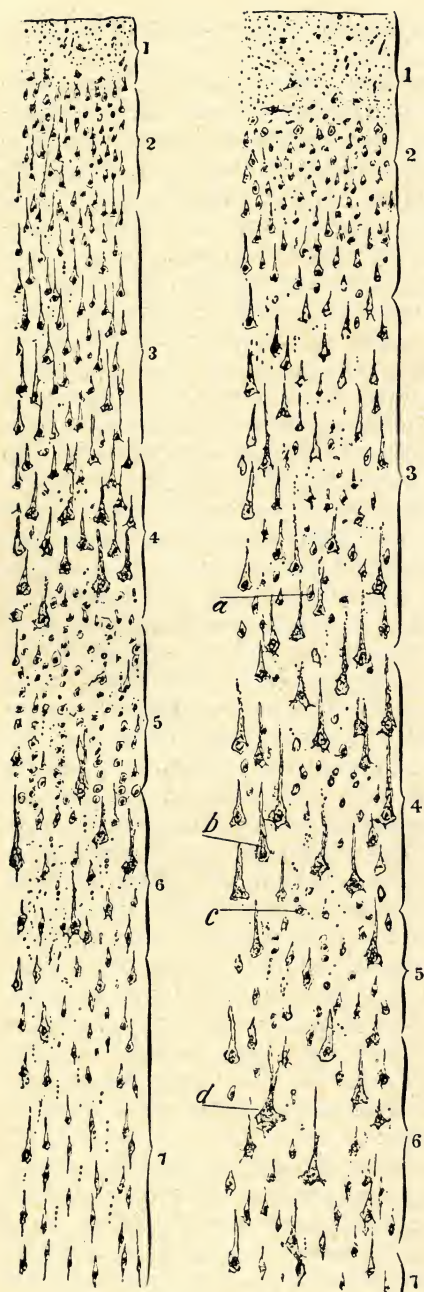 1
2
3
4
5
6
7
1
2
3
a
4
b
c
5
d
6
7